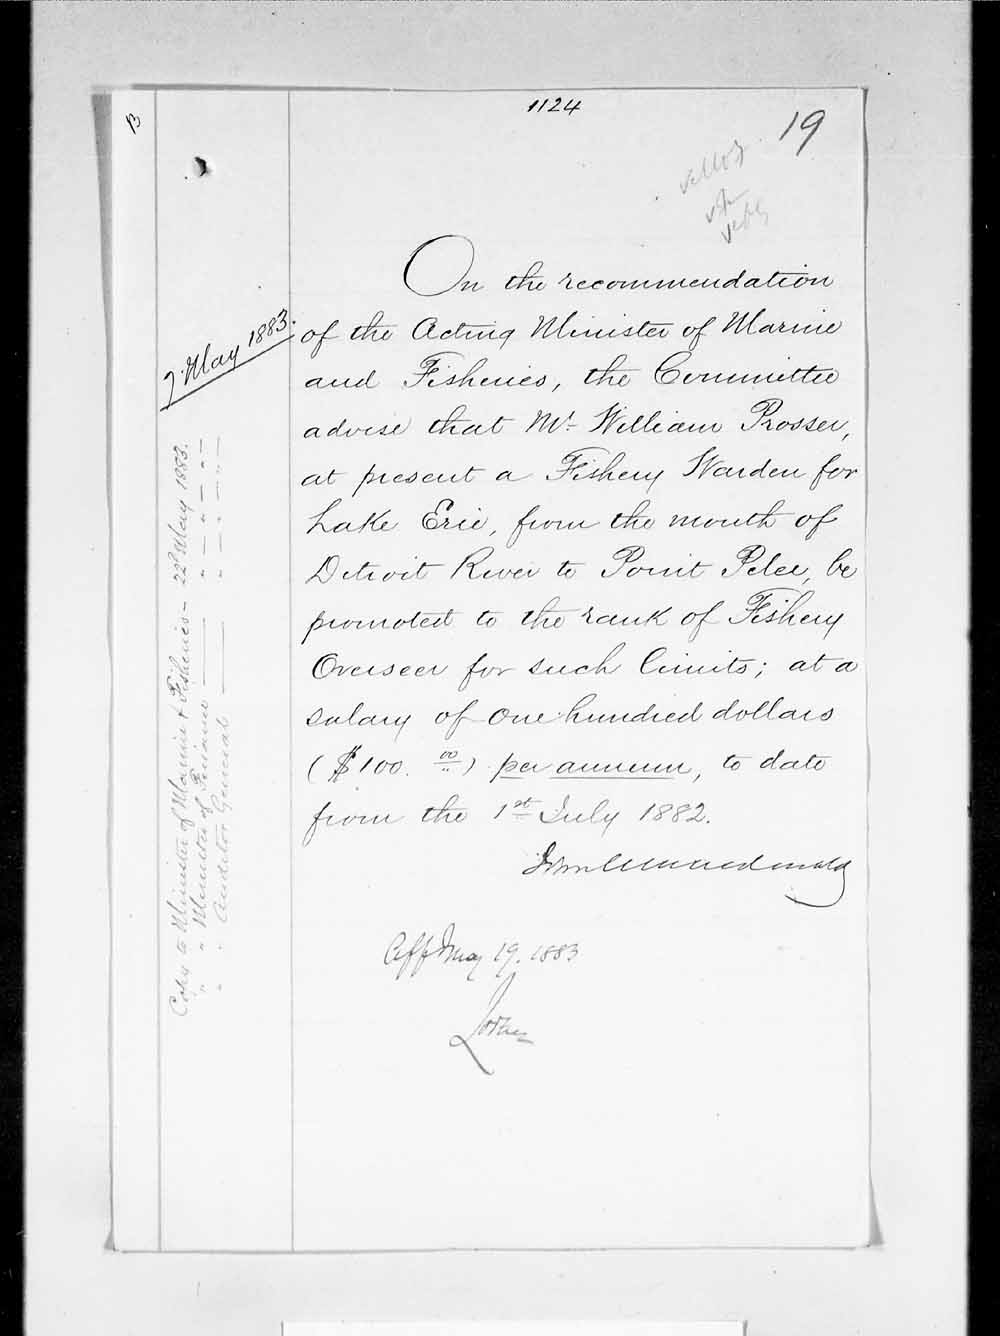 1124
19
B
7 May 1883.
On the recommendation
of the Acting Minister of Marine
and Fisheries, the Committee
advise that Mr. William Prosser,
at present a Fishery Warden for
Lake Erie, from the mouth of
Detroit River to Point Pelee, be
promoted to the rank of Fishery
Overseer for such limits; at a
salary of one hundred dollars
($100. 00) per annum, to date
from the 1st July 1882.
John A Macdonald
App May 19. 1883
Lorne
Copy to Minister of Marine & Fisheries - 22d May 1883.
" " Minister of Finance — " — " — " —
" " Auditor General — " — " — " —